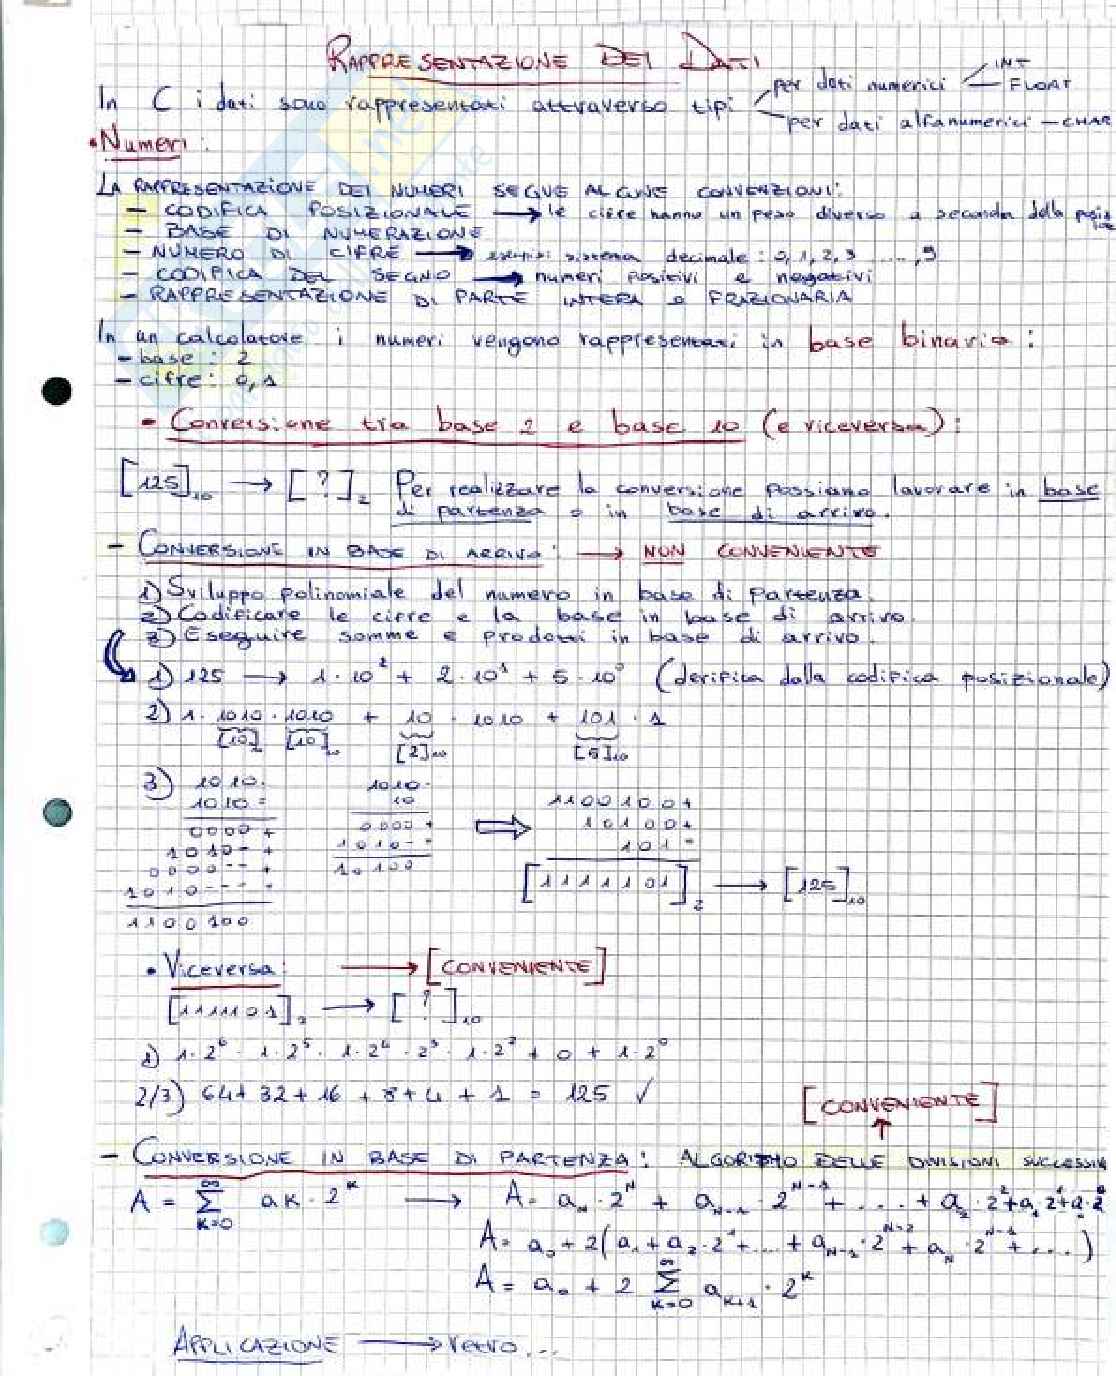 RAPPRESENTAZIONE DEI DATI
In C i dati sono rappresentati attraverso tipi
per dati numerici
INT
FLOAT
per dati alfanumerici - CHAR
• Numeri:
LA RAPPRESENTAZIONE DEI NUMERI SEGUE ALCUNE CONVENZIONI:
- CODIFICA POSIZIONALE → le cifre hanno un peso diverso a seconda della
- BASE DI NUMERAZIONE
- NUMERO DI CIFRE → sistema decimale: 0, 1, 2, 3 ...., 9
- CODIFICA DEL SEGNO → numeri positivi e negativi
- RAPPRESENTAZIONE DI PARTE INTERA e FRAZIONARIA
In un calcolatore i numeri vengono rappresentati in base binaria:
- base: 2
- cifre: 0,1
• Conversione tra base 2 e base 10 (e viceversa):
[125]10 → [?]2 Per realizzare la conversione possiamo lavorare in base
di partenza o in base di arrivo.
- CONVERSIONE IN BASE DI ARRIVO: → NON CONVENIENTE
1) Sviluppo polinomiale del numero in base di partenza.
2) Codificare le cifre e la base in base di arrivo.
3) Eseguire somme e prodotti in base di arrivo.
1) 125 → 1·10² + 2·10¹ + 5·10⁰ (verifica dalla codifica posizionale)
2) 1·1010·1010 + 10·1010 + 101·1
[10] [10] [2]10 [5]10
3) 1010· 1010· 1100100+
1010= 10 10100+
0000+ 0000+ 101=
1010-+ 1010--
0000--+ 10100
1010---
1100100
[1111101]2 → [125]10
• Viceversa: → [CONVENIENTE]
[1111101]2 → [?]10
1) 1·2⁶ · 1·2⁵ · 1·2⁴ · 2³ · 1·2² + 0 + 1·2⁰
2/3) 64+32+16+8+4+1 = 125 ✓
[CONVENIENTE]
- CONVERSIONE IN BASE DI PARTENZA: ALGORITMO DELLE DIVISIONI SUCCESSIVE
A = ∞ Σ K=0 aK·2ᴷ → A= aN·2ᴺ + aN-1·2ᴺ⁻¹ + ... + a2·2²+a1·2¹+a0·2⁰
A= a0+2(a1+a2·2¹+....+aN-1·2ᴺ⁻²+aN·2ᴺ⁻¹+....)
A= a0 + 2 ∞ Σ K=0 aK+1·2ᴷ
APPLICAZIONE → retro...